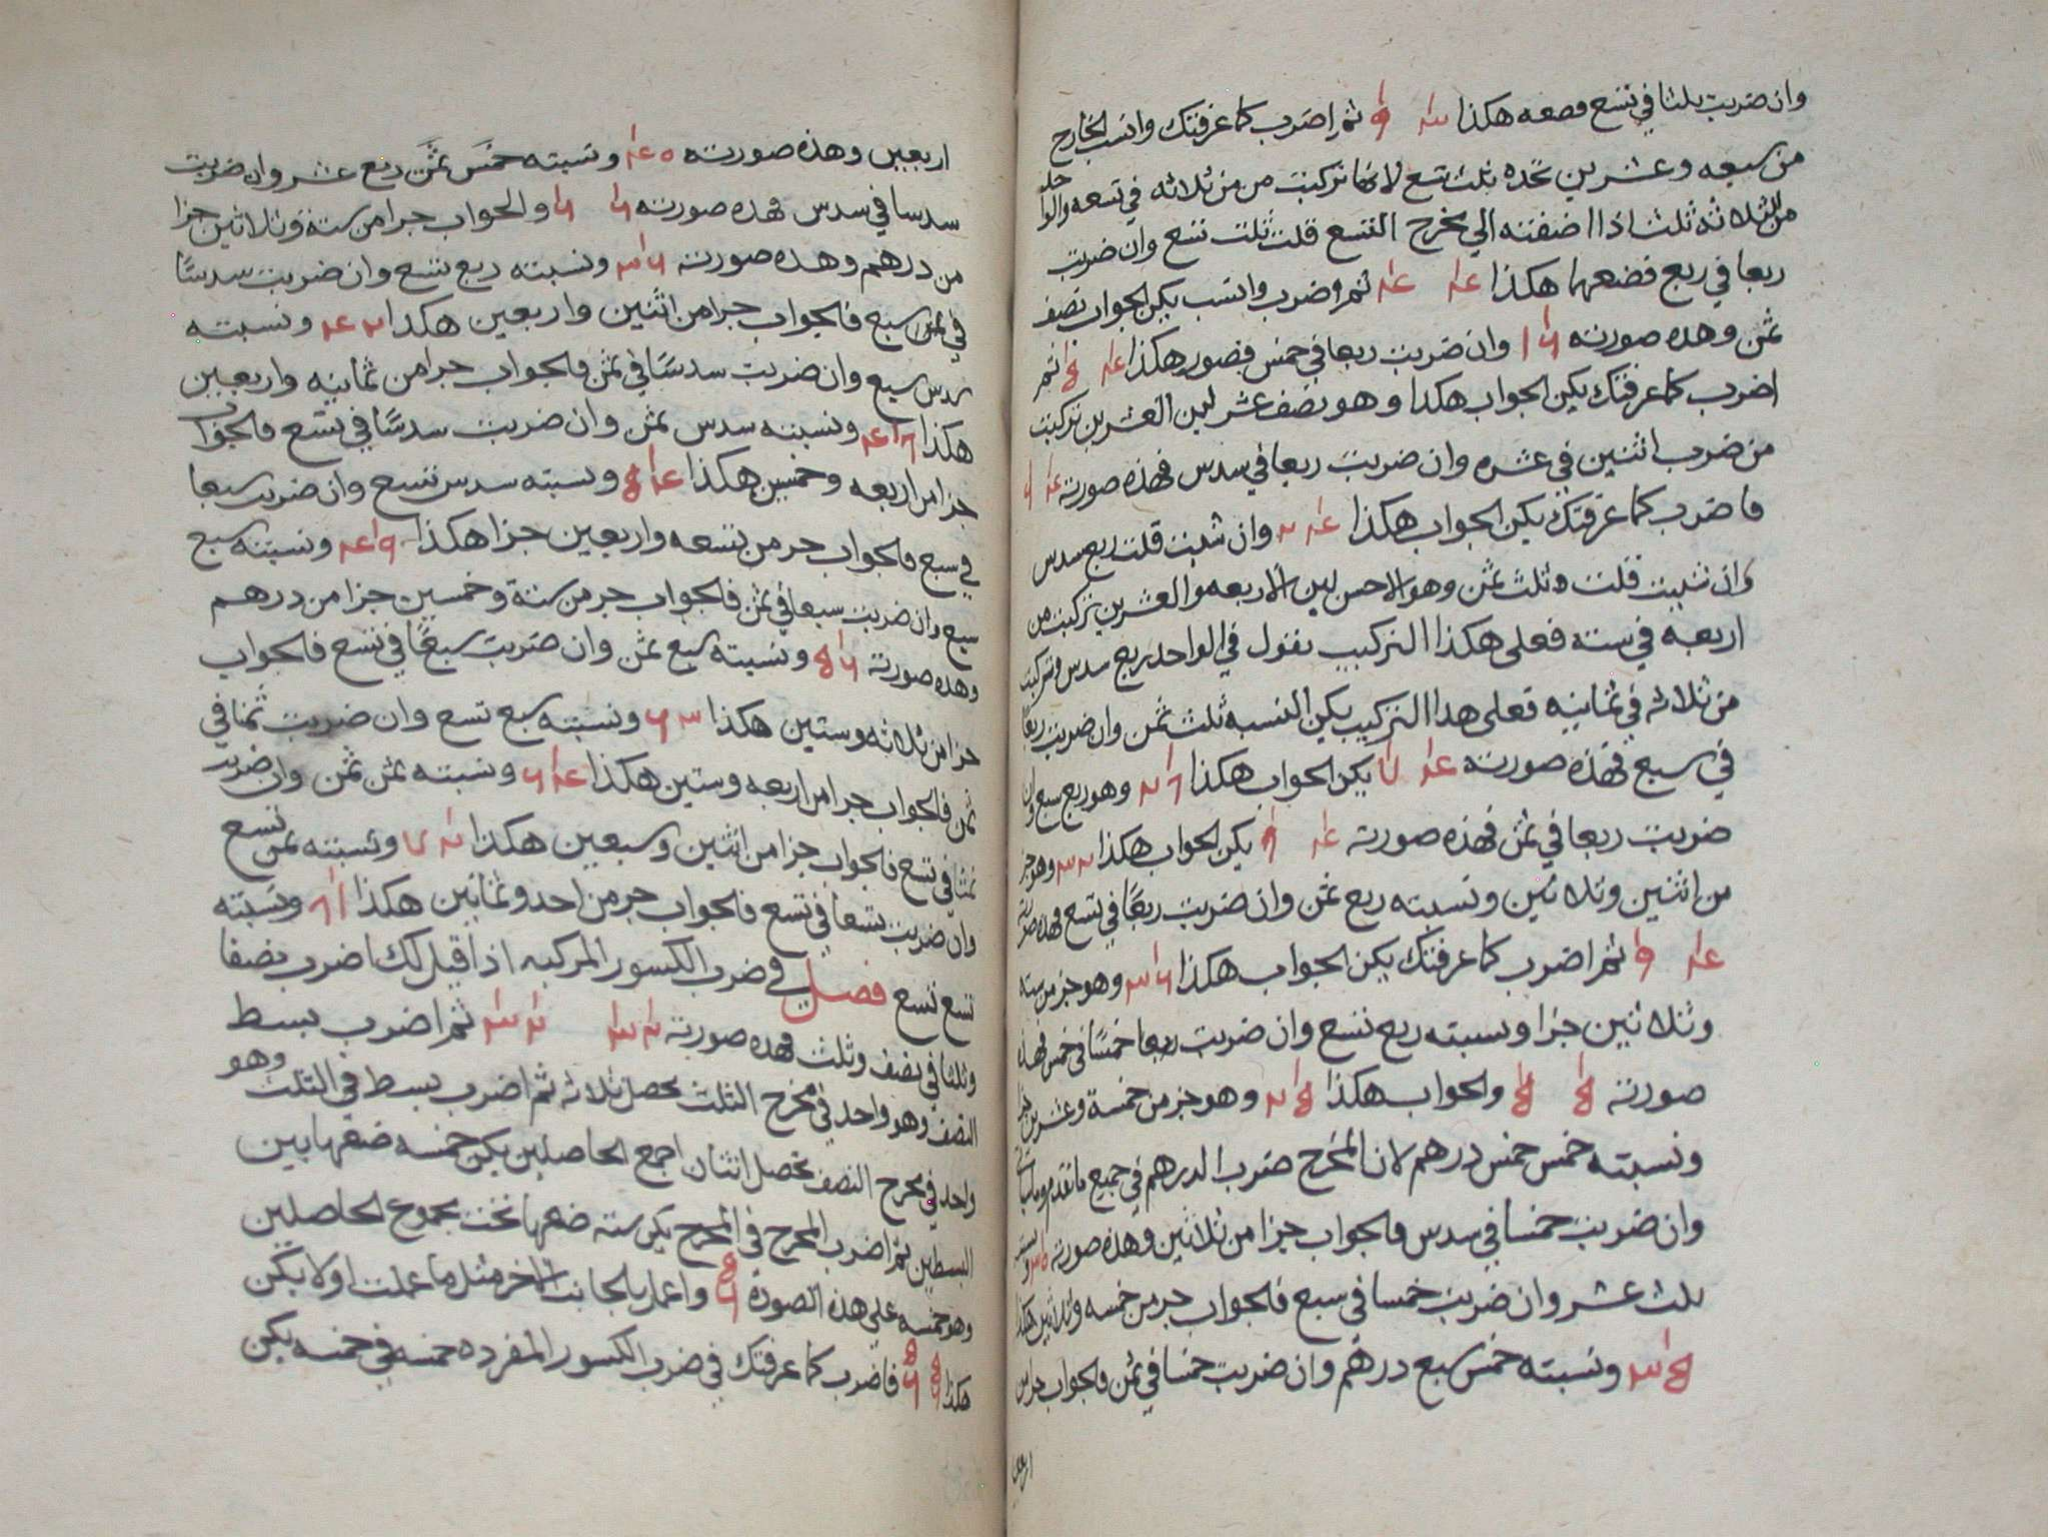 وان ضربت ثلثا في تسع فضعه هكذا ثم اضرب كما عرفتك وانسب الخارج
من سبعه وعشرين تجده ثلث تسع لانها تركبت من من ثلاثه في تسعه والواحد
من الثلاثه ثلث اذا اضفته الي مخرج التسع قلت ثلث تسع وان ضربت
ربعا في ربع فضعهما هكذا ثم وضرب وانسب يكن الجواب نصف
ثمن وهذه صورته ١٦ وان ضربت ربعا في خمس فصوره هكذا ثم
اضرب كما عرفتك يكن الجواب هكدا وهو نصف عشر لين العشرين تركبت
من ضرب اثنين في عشره وان ضربت ربعا في سدس فهذه صورته
فاضرب كما عرفتك يكن الجواب هكذا وان شيت قلت ربع سدس
وان شيت قلت وثلث ثمن وهو الاحسن لين الاربعه والعشرين تركبت من
اربعه في سته فعلي هكذا التركيب نقول في الواحد ربع سدس وتركبت
من ثلاثه في ثمانيه فعلي هذا التركيب يكن النسبه ثلث ثمن وان ضربت ربعا
في سبع فهذه صورته يكن الجواب هكذا وهو ربع سبع وان
ضربت ربعا في ثمن فهذه صورته يكن الجواب هكذا وهو جز
من اثنين وثلاثين ونسبته ربع ثمن وان ضربت ربعا في تسع فهذه صورته
ثم اضرب كما عرفتك يكن الجواب هكذا وهو جز من سته
وثلاثين جزا ونسبته ربع تسع وان ضربت ربعا خمسا في خمس فهذه
صورته والجواب هكذا وهو جز من خمسة وعشرين جزا
ونسبته خمس خمس درهم لان المخرج ضرب الدرهم في جميع ما تقدم
وان ضربت خمسا في سدس فالجواب جزا من ثلاثين وهذه صورته
ثلث عشر وان ضربت خمسا في سبع فالجواب جز من خمسه وثلاثين هكذا
ونسبته خمس سبع درهم وان ضربت خمسا في ثمن فالجواب جزا من
اربعين
اربعين وهذه صورته ونسبته خمس ثمن ربع عشر وان ضربت
سدسا في سدس فهذه صورته والجواب جزا من ستة وثلاثين جزا
من درهم وهذه صورته ونسبته ربع تسع وان ضربت سدسا
في سبع فالجواب جزا من اثنين واربعين هكذا ونسبته
سدس سبع وان ضربت سدسا في ثمن فالجواب جزا من ثمانيه واربعين
هكذا ونسبته سدس ثمن وان ضربت سدسا في تسع فالجواب
جزا من اربعه وخمسين هكذا ونسبته سدس تسع وان ضربت سبعا
في سبع فالجواب جز من تسعه واربعين جزا هكذا ونسبته سبع
سبع وان ضربت سبعا في ثمن فالجواب جز من ستة وخمسين جزا من درهم
وهذه صورته ونسبته سبع ثمن وان ضربت سبعا في تسع فالجواب
جزا من ثلاثه وستين هكذا ونسبته سبع تسع وان ضربت ثمنا في
ثمن فالجواب جزا من اربعه وستين هكذا ونسبته ثمن ثمن وان ضربت
ثمنا في تسع فالجواب جزا من اثنين وسبعين هكذا ونسبته ثمن تسع
وان ضربت تسعا في تسع فالجواب جز من احد وثمانين هكذا ونسبته
تسع تسع فصل في ضرب الكسور المركبه اذا قيل لك اضرب نصفا
وثلثا في نصف وثلث فهذه صورته ثم اضرب بسط
النصف وهو واحد في مخرج الثلث يحصل ثلاثه ثم اضرب بسط في الثلث وهو
واحد في مخرج النصف يحصل اثنان اجمع الحاصلين يكن خمسه ضعها بين
البسطين ثم اضرب المخرج في المخرج يكن سته ضعها تحت مجموع الحاصلين
وهو خمسه علي هذه الصورة واعمل بالجانب الاخر مثل ما عملت اولا يكن
هكذا فاضرب كما عرفتك في ضرب الكسور المفرده خمسه في خمسه يكن